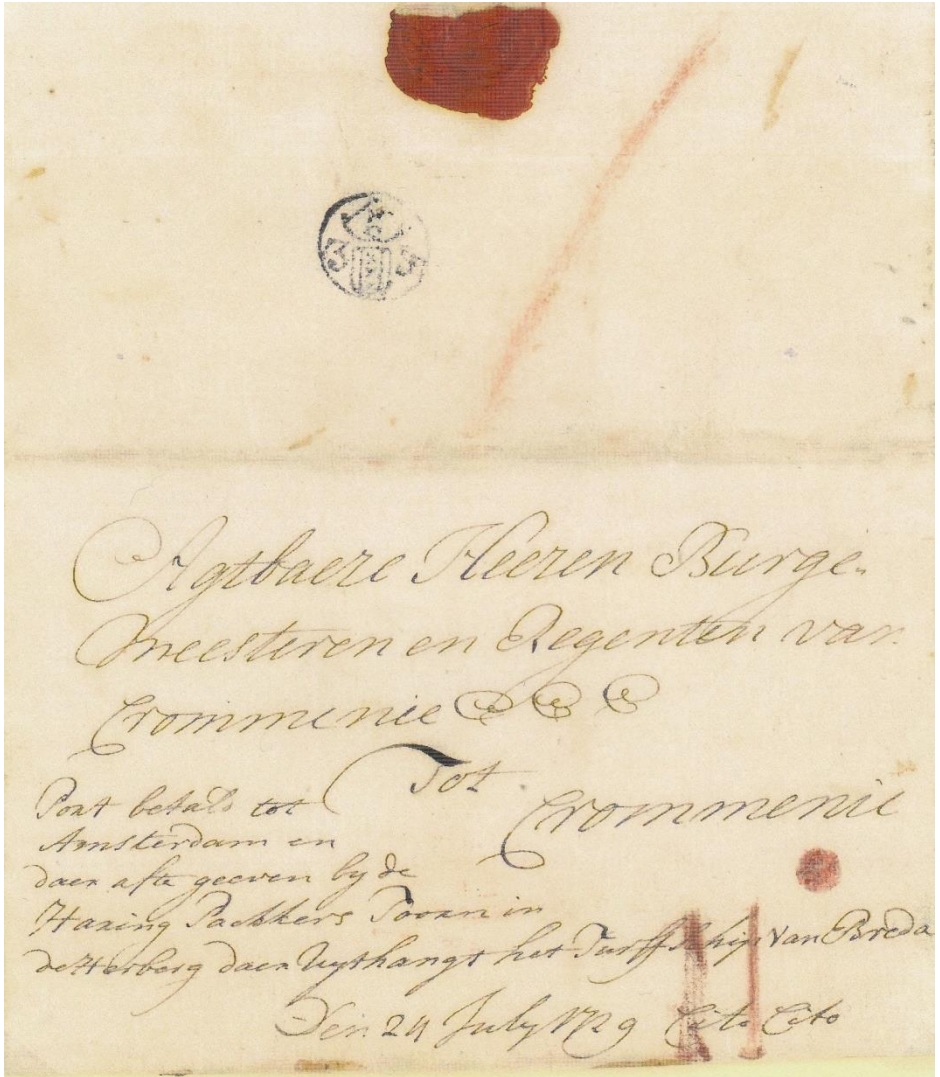 3 3
Agtbaere Heeren Burge-
meesteren en Regenten van
Crommenie
Tot
Crommenie
Port betalt tot
Amsterdam en
daer afte geeven by de
Haring Packkers Toorn in
de Herberg daer Uythangt het Turff Schip Van Breda
Den 24 July 1729 Cito Cito